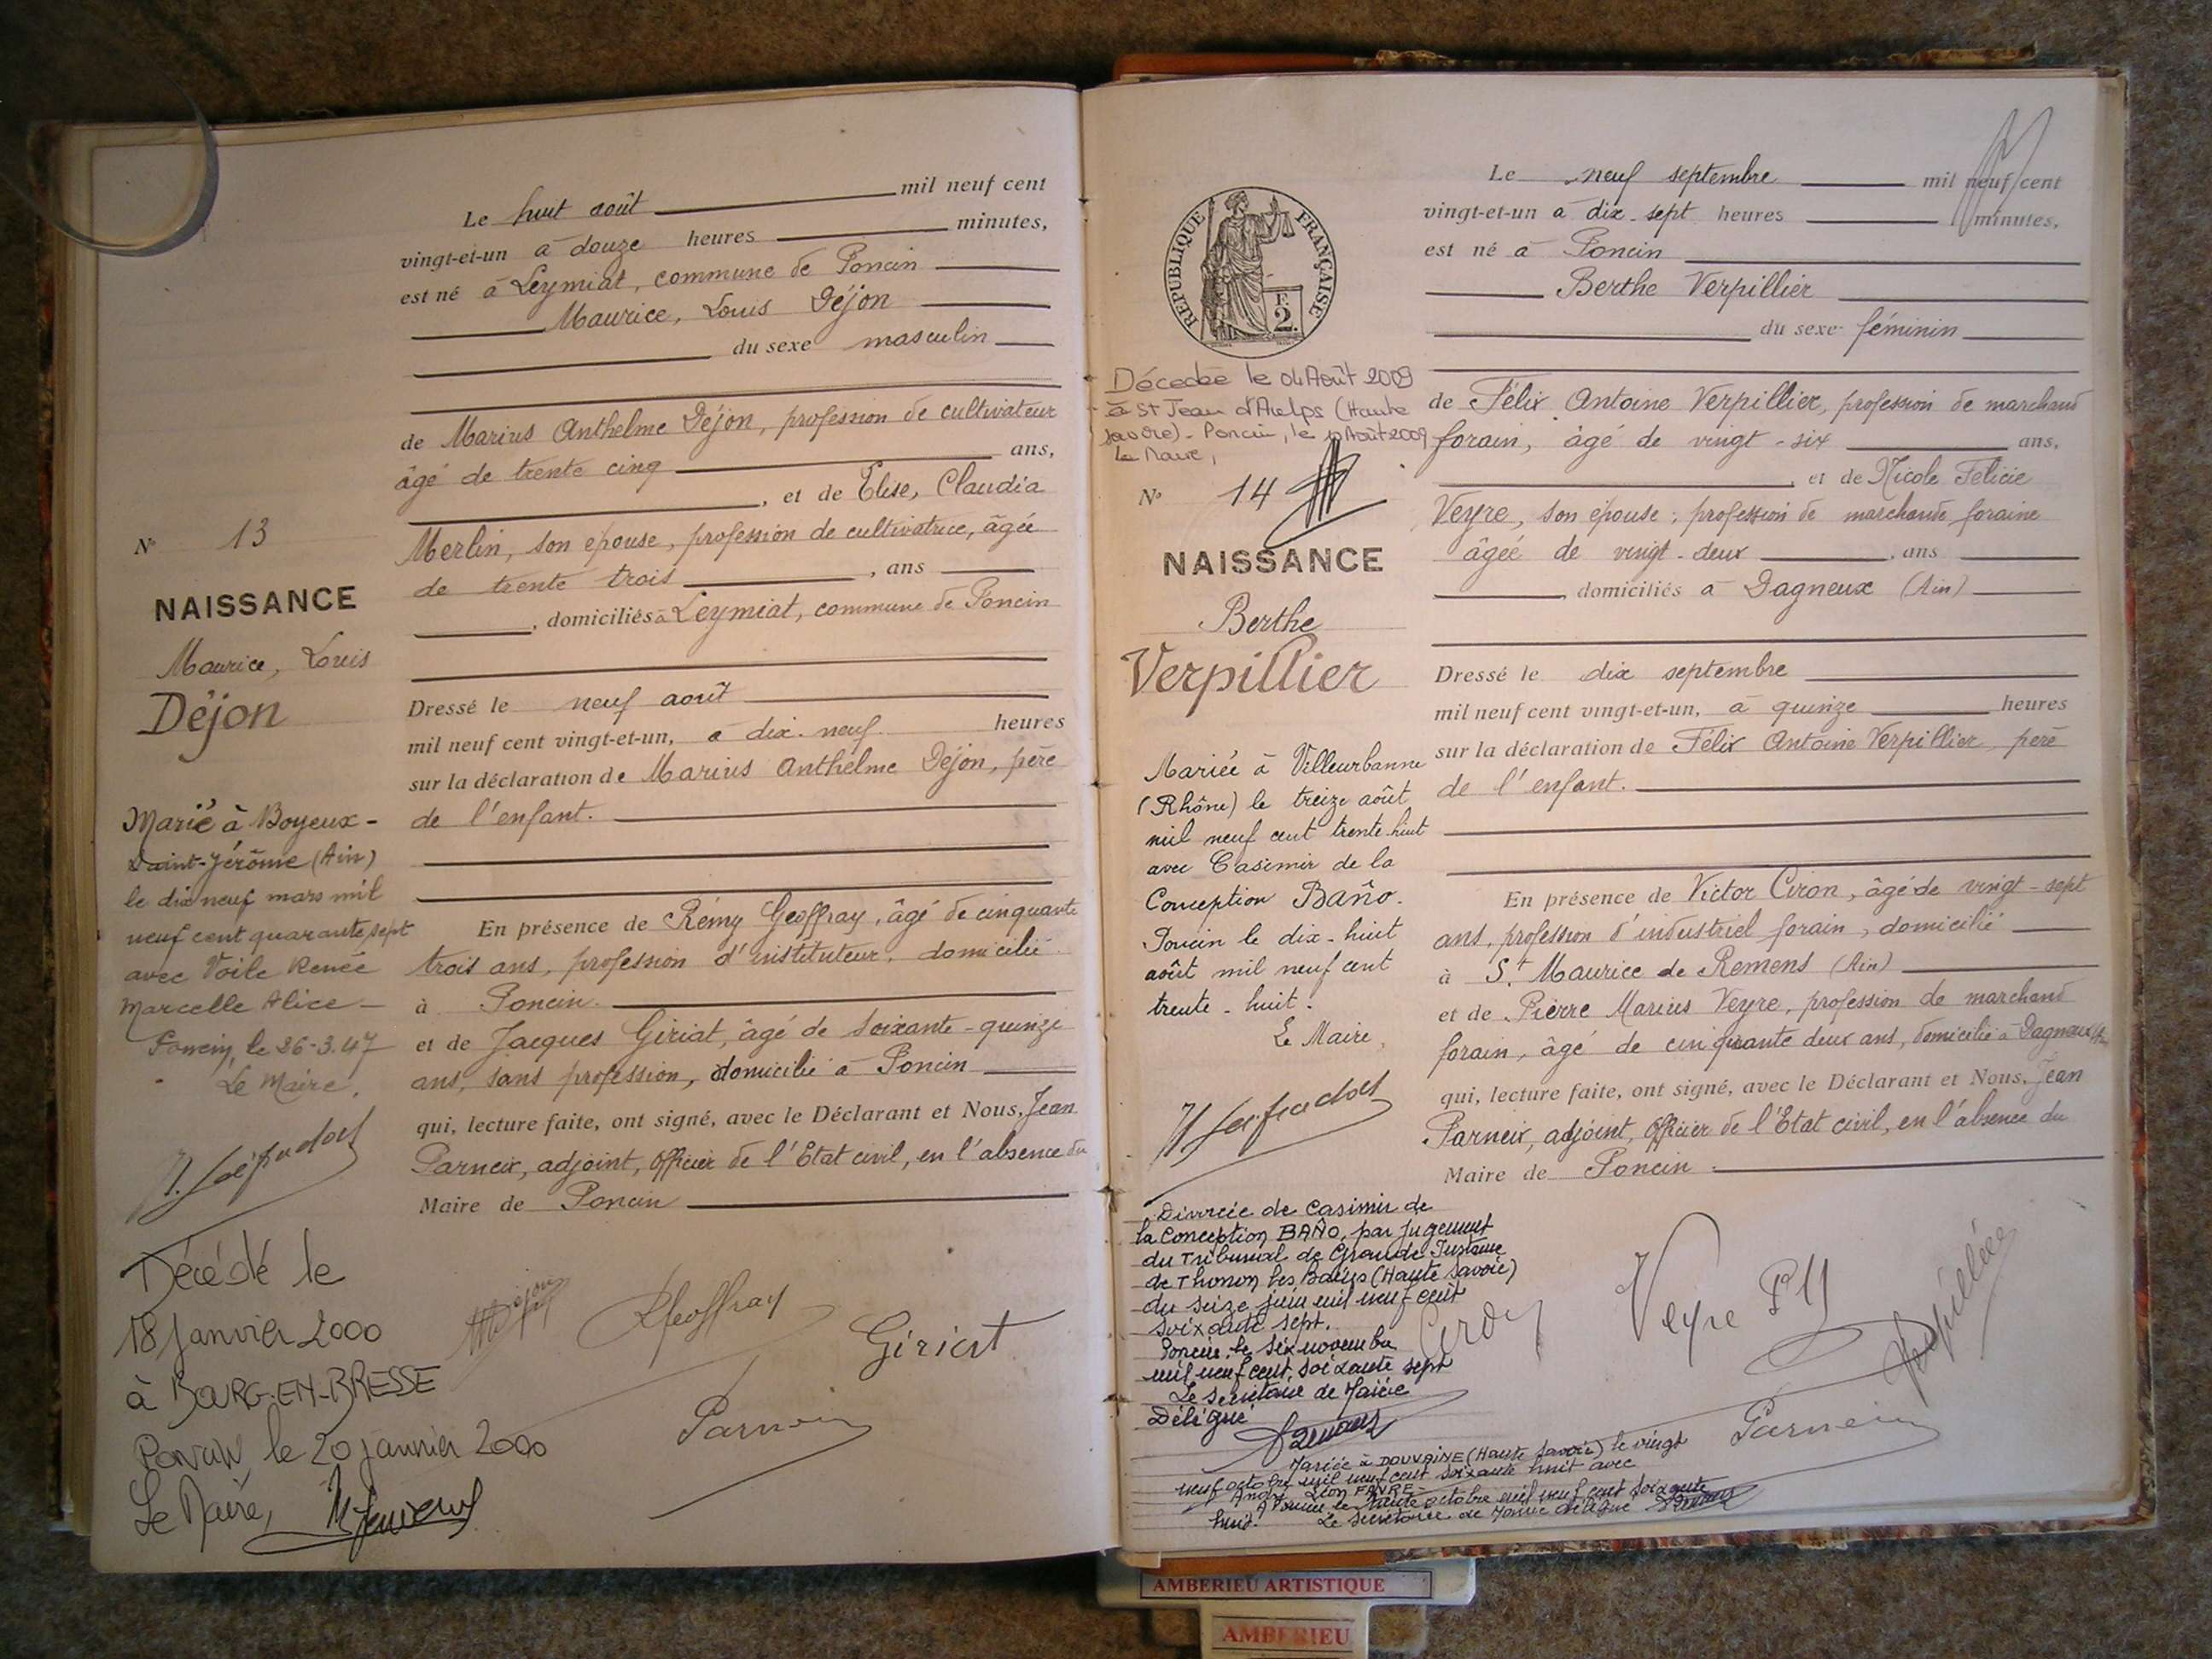 Le huit août mil neuf cent
vingt-et-un à douze heures minutes,
est né à Leymiat, commune de Poncin
Maurice, Louis Déjon
du sexe masculin
de Marius Anthelme Déjon, profession de cultivateur
âgé de trente cinq ans,
, et de Élise, Claudia
Merlin, son épouse, profession de cultivatrice, âgée
de trente trois , ans
, domiciliés à Leymiat, commune de Poncin
Dressé le neuf août
mil neuf cent vingt-et-un, à dix-neuf heures
sur la déclaration de Marius Anthelme Déjon, père
de l'enfant.
En présence de Rémy Geoffray, âgé de cinquante
trois ans, profession d'instituteur, domicilié
à Poncin
et de Jacques Giriat, âgé de soixante-quinze
ans, sans profession, domicilié à Poncin
qui, lecture faite, ont signé, avec le Déclarant et Nous, Jean
Parneix, adjoint, officier de l'Etat civil, en l'absence du
Maire de Poncin
Déjon
Geoffray
Giriat
Parneix
N° 13
NAISSANCE
Maurice, Louis
Déjon
Marié à Boyeux-
Saint-Jérôme (Ain)
le dix neuf mars mil
neuf cent quarante sept
avec Voile Renée
Marcelle Alice
Poncin, le 26-3.47
Le Maire,
Décédé le
18 Janvier 2000
à BOURG-EN-BRESSE
Poncin le 20 janvier 2000
Le Maire,
RÉPUBLIQUE FRANÇAISE
F.
2.
Décédée le 04 Août 2009
à St Jean d'Aulps (Haute
Savoie) - Poncin, le 10 Août 2009
Le Maire,
N° 14
NAISSANCE
Berthe
Verpillier
Mariée à Villeurbanne
(Rhône) le treize août
mil neuf cent trente-huit
avec Casimir de la
Conception Baño.
Poncin le dix-huit
août mil neuf cent
trente-huit.
Le Maire,
Divorcée de Casimir de
la Conception BAÑO, par jugement
du Tribunal de Grande Instance
de Thonon les Bains (Haute Savoie)
du seize juin mil neuf cent
soixante sept.
Poncin, le six novembre
mil neuf cent soixante sept
Le Secrétaire de Mairie
Délégué
Mariée à DOUVAINE (Haute Savoie) le vingt
neuf octobre mil neuf cent soixante huit avec
André Léon FAVRE -
A Poncin le trente octobre mil neuf cent soixante
huit. Le Secrétaire de Mairie délégué
Le neuf septembre mil neuf cent
vingt-et-un à dix-sept heures minutes,
est né à Poncin
Berthe Verpillier
du sexe féminin
de Félix Antoine Verpillier, profession de marchand
forain, âgé de vingt-six ans,
, et de Nicole Felicie
Veyre, son épouse, profession de marchande foraine
âgée de vingt-deux , ans
, domiciliés à Dagneux (Ain)
Dressé le dix septembre
mil neuf cent vingt-et-un, à quinze heures
sur la déclaration de Félix Antoine Verpillier, père
de l'enfant.
En présence de Victor Ciron, âgé de vingt-sept
ans, profession d'industriel forain, domicilié
à St Maurice de Remens (Ain)
et de Pierre Marius Veyre, profession de marchand
forain, âgé de cinquante deux ans, domicilié à Dagneux (Ain)
qui, lecture faite, ont signé, avec le Déclarant et Nous, Jean
Parneix, adjoint, officier de l'Etat civil, en l'absence du
Maire de Poncin
Ciron
Veyre P M
Verpillier
Parneix
AMBERIEU ARTISTIQUE
AMBERIEU